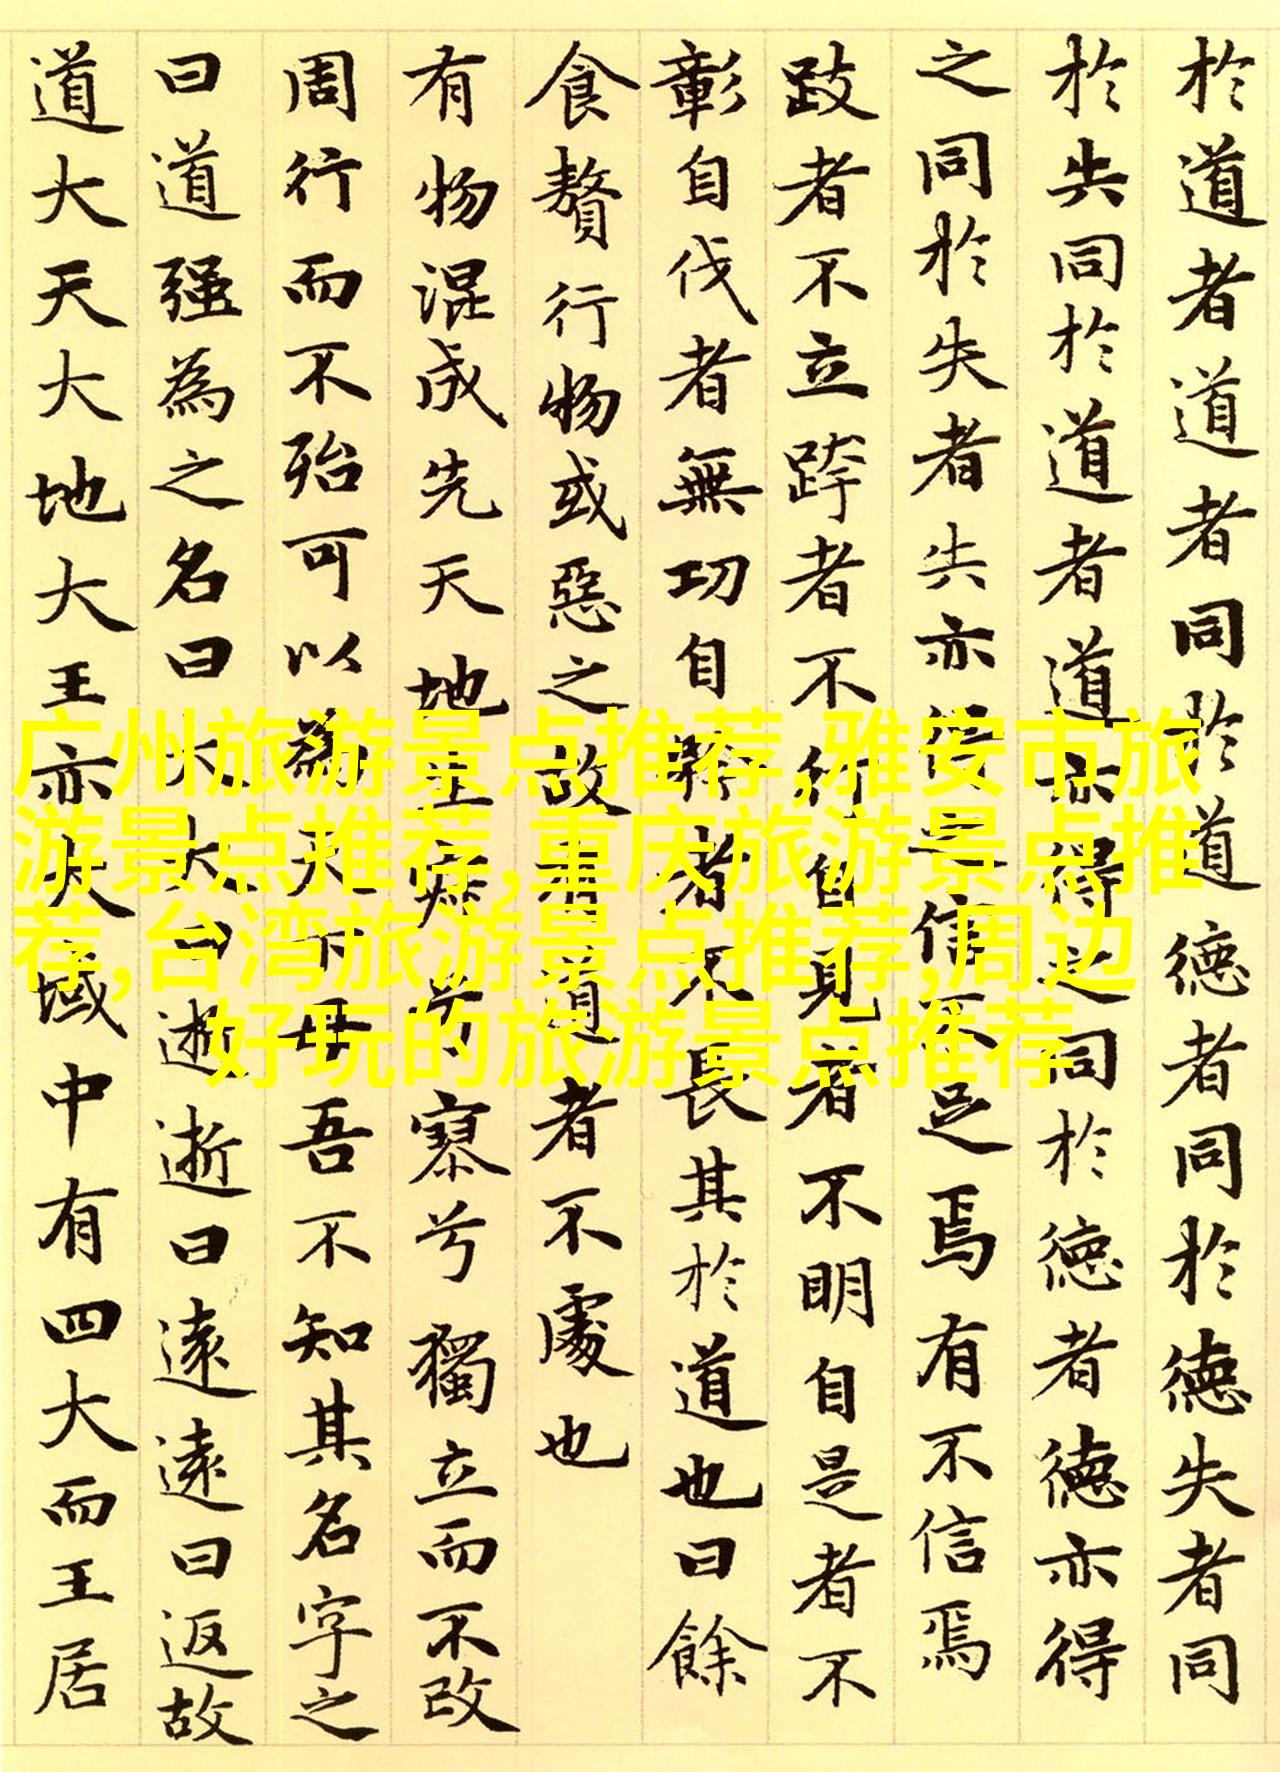 於道者道者同於道德者同於德失者同
於失同於道者道亦得之同於德者德亦得
之同於失者失亦得之信不足焉有不信焉
跂者不立跨者不行自見者不明自是者不
彰自伐者無功自矜者不長其於道也曰餘
食贅行物或惡之故有道者不處也
有物混成先天地生寂兮寥兮獨立而不改
周行而不殆可以為天下母吾不知其名字之
曰道强為之名曰大大曰逝逝曰遠遠曰返故
道大天大地大王亦大域中有四大而王居
广州旅游景点推荐,雅安市旅
游景点推荐,重庆旅游景点推
荐,台湾旅游景点推荐,周边
好玩的旅游景点推荐